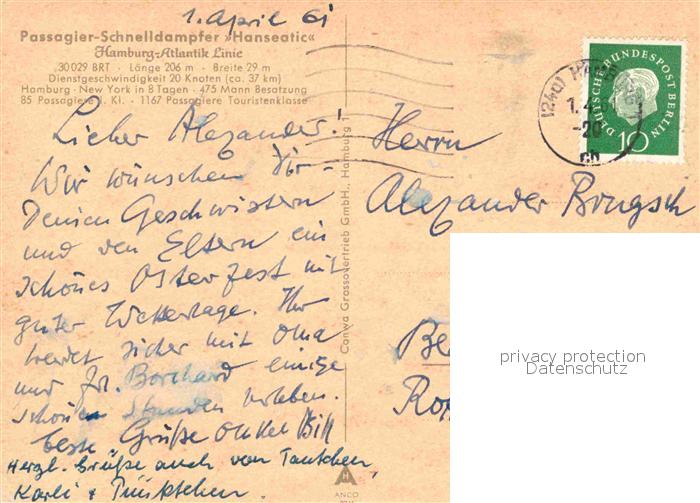 1. April 61
Passagier-Schnelldampfer »Hanseatic«
Hamburg-Atlantik Linie
30029 BRT · Länge 206 m · Breite 29 m
Dienstgeschwindigkeit 20 Knoten (ca. 37 km)
Hamburg · New York in 8 Tagen · 475 Mann Besatzung
85 Passagiere I. Kl. · 1167 Passagiere Touristenklasse
Lieber Alexander!
Wir wünschen Dir -
Deinen Geschwistern
und den Eltern ein
schönes Osterfest mit
guter Wetterlage. Ihr
werdet sicher mit Oma
und Fr. Borchard einige
schöne Stunden verleben.
beste Grüße Onkel Bill
Herzl. Grüße auch von Tantchen,
Karli + Pünktchen.
Conwa Grossovertrieb GmbH., Hamburg
ANCO
DEUTSCHE BUNDESPOST BERLIN
10
(24a) HAMBURG
1.4.61
-20
Herrn
Alexander Bongsch
Be
Ro
privacy protection
Datenschutz